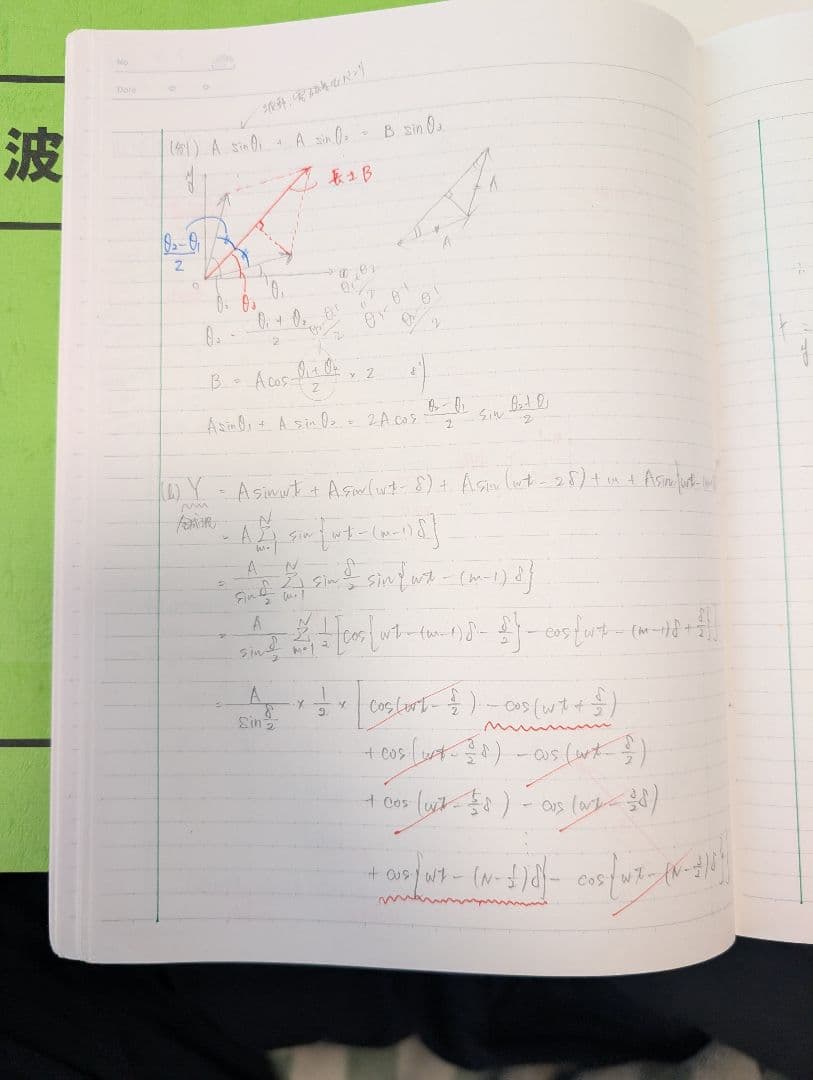 波
No.
Date
(例) A sinθ₁ + A sinθ₂ = B sinθ₃
y
長さB
A
A
(θ₂-θ₁)/2
0
θ₂ θ₃ θ₁
θ₃ = (θ₁+θ₂)/2
B = A cos (θ₁+θ₂)/2 × 2
A sinθ₁ + A sinθ₂ = 2A cos (θ₂-θ₁)/2 sin (θ₂+θ₁)/2
Y = A sinωt + A sin(ωt-δ) + A sin(ωt-2δ) + … + A sin{ωt-
合成波
= A Σ_{m=1}^{N} sin{ωt-(m-1)δ}
= A/(sin δ/2) Σ_{m=1}^{N} sin δ/2 sin{ωt-(m-1)δ}
= A/(sin δ/2) Σ_{m=1}^{N} 1/2 [cos{ωt-(m-1)δ-δ/2} - cos{ωt-(m-1)δ+δ/2}]
= A/(sin δ/2) × 1/2 × [cos(ωt-δ/2) - cos(ωt+δ/2)
+ cos(ωt-3/2 δ) - cos(ωt-δ/2)
+ cos(ωt-5/2 δ) - cos(ωt-3/2 δ)
⋮
+ cos{ωt-(N-1/2)δ} - cos{ωt-(N-3/2)δ}]